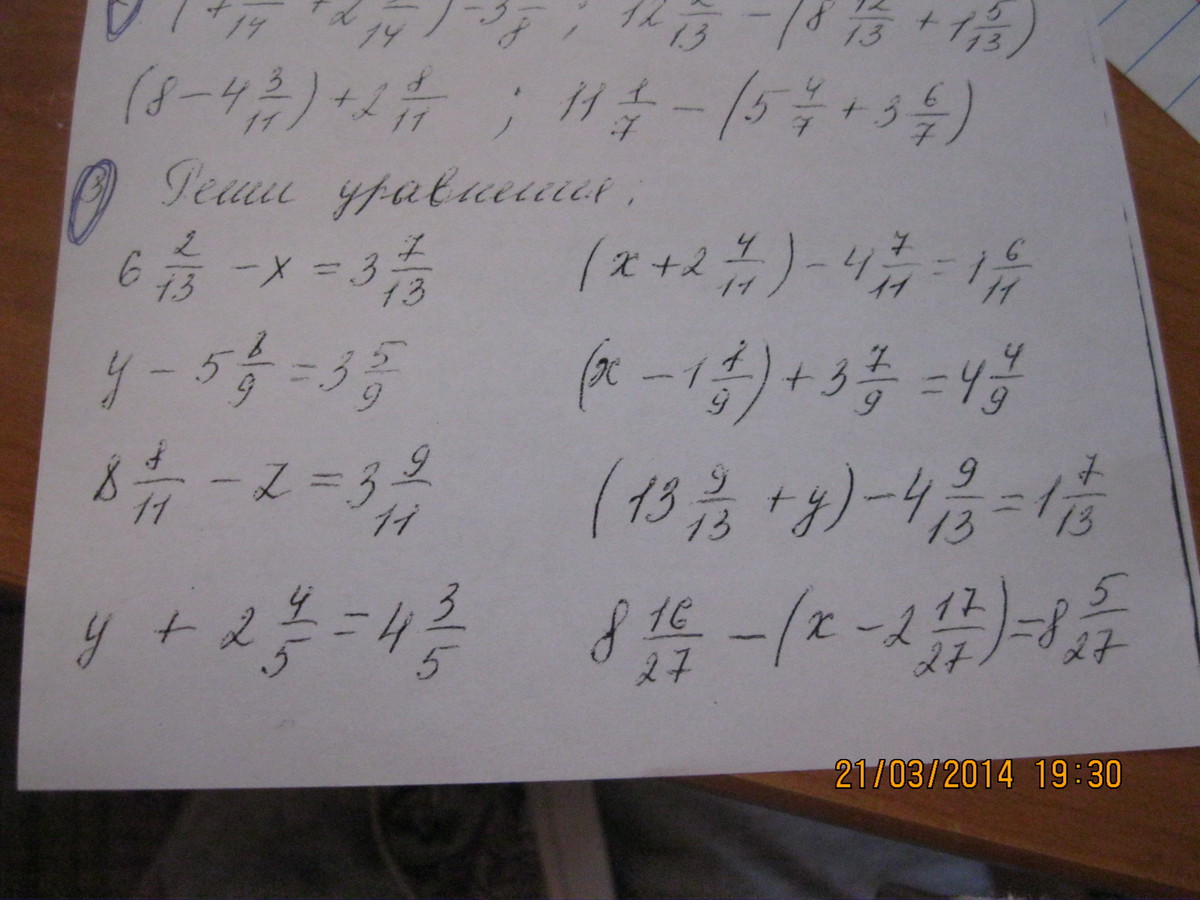 12 2/13 − (8 12/13 + 1 5/13)
(8 − 4 3/11) + 2 8/11 ; 11 1/7 − (5 4/7 + 3 6/7)
3 Реши уравнения:
6 2/13 − x = 3 7/13 (x + 2 4/11) − 4 7/11 = 1 6/11
y − 5 8/9 = 3 5/9 (x − 1 1/9) + 3 7/9 = 4 4/9
8 1/11 − z = 3 9/11 (13 9/13 + y) − 4 9/13 = 1 7/13
y + 2 4/5 = 4 3/5 8 16/27 − (x − 2 17/27) = 8 5/27
21/03/2014 19:30